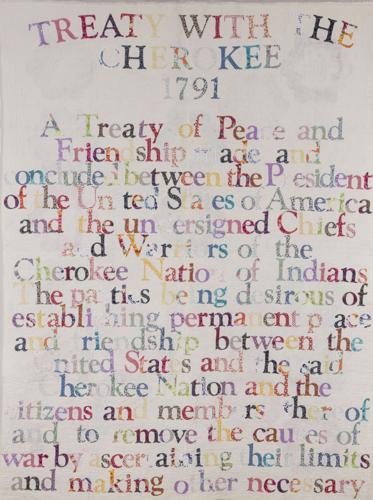 TREATY WITH THE
CHEROKEE
1791
A Treaty of Peace and
Friendship made and
concluded between the President
of the United States of America
and the undersigned Chiefs
and Warriors of the
Cherokee Nation of Indians
The parties being desirous of
establishing permanent peace
and friendship between the
United States and the said
Cherokee Nation and the
citizens and members thereof
and to remove the causes of
war by ascertaining their limits
and making other necessary